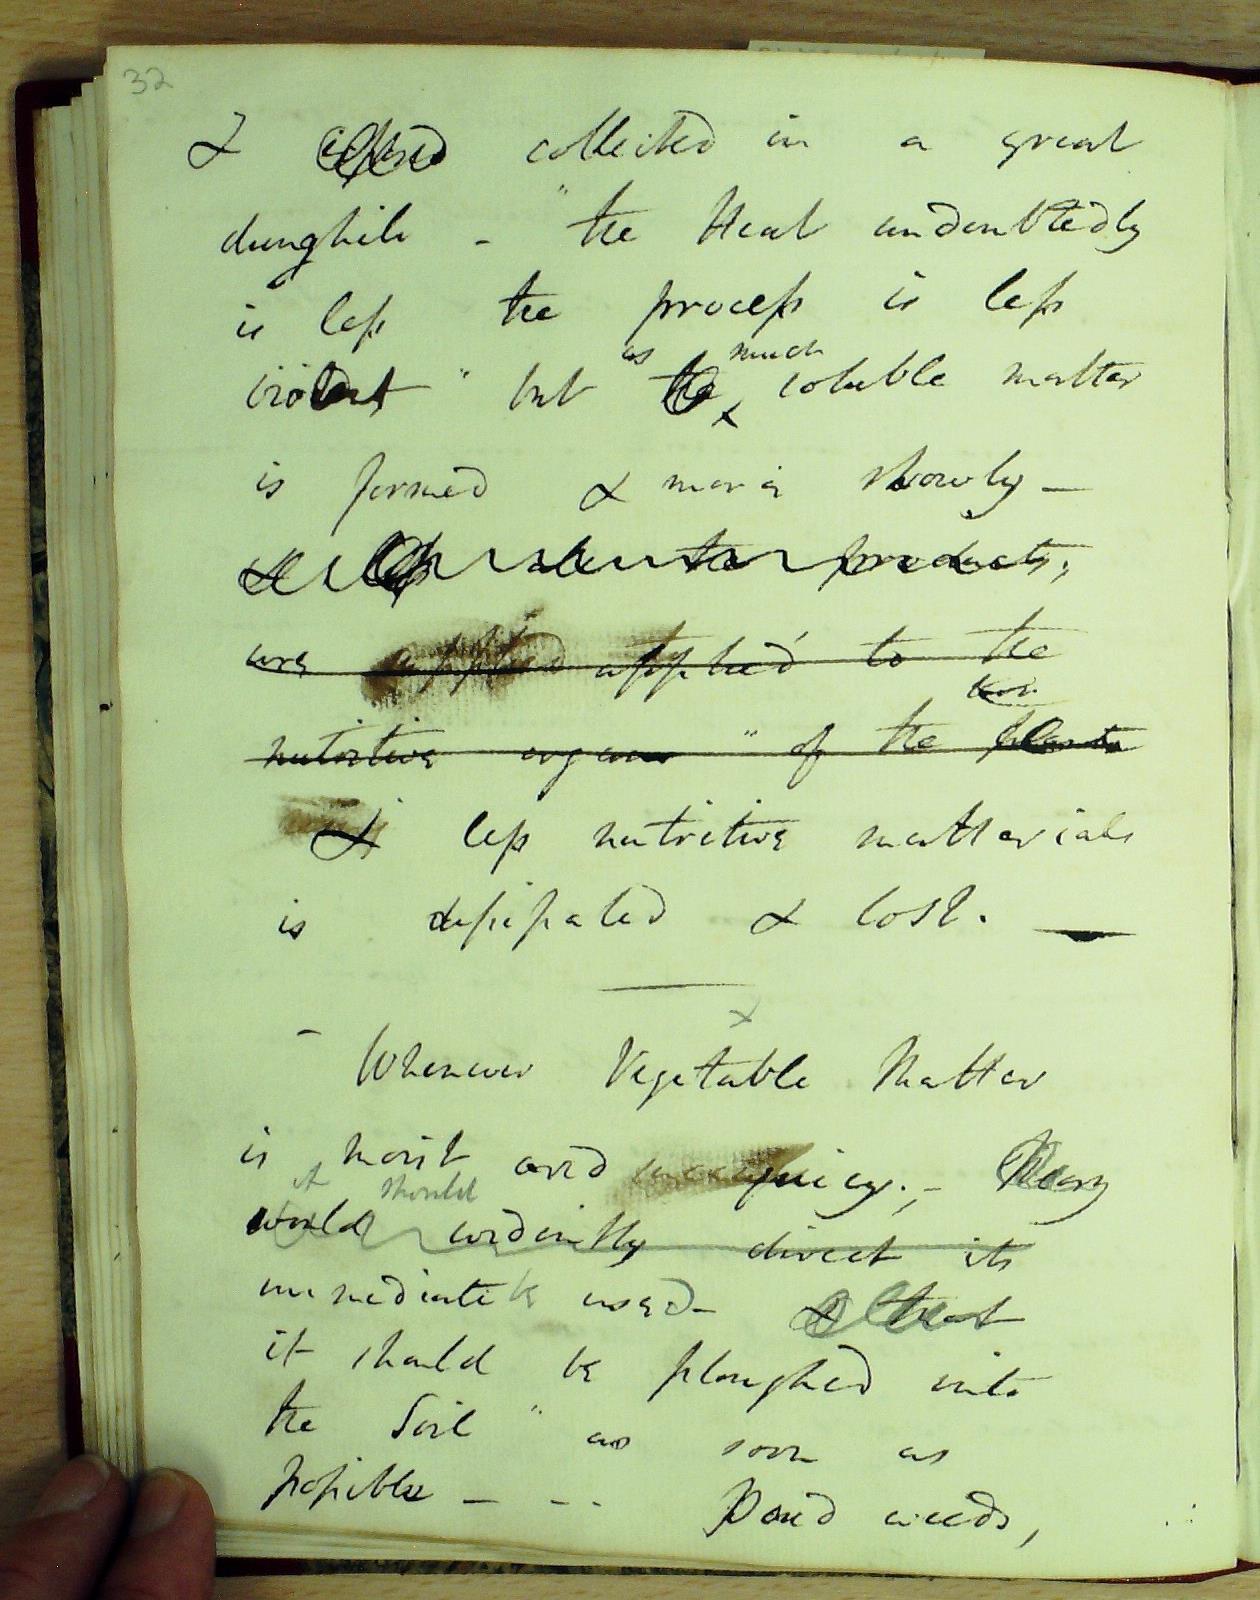 32
& collected in a great
dunghill - " the Heat undoubtedly
is less the process is less
violent " but the soluble matter
as much
is formed & more slowly -
& less products;
are applied applied to the
nutritive organs " of the plants
& less nutritive matterials
is dissipated & lost. —
- Whenever Vegetable Matter
is moist and juicy; - Theory
it should
would evidently direct its
immediate used - & that
it should be ploughed into
the Soil " as soon as
possible - - - Pond weeds,